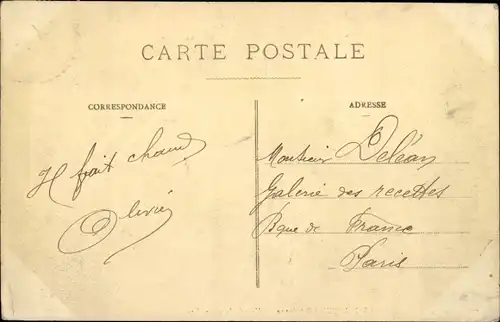 CARTE POSTALE
CORRESPONDANCE
Il fait chaud
Olivié
ADRESSE
Monsieur Deléan
Galerie des recettes
Bque de France
Paris